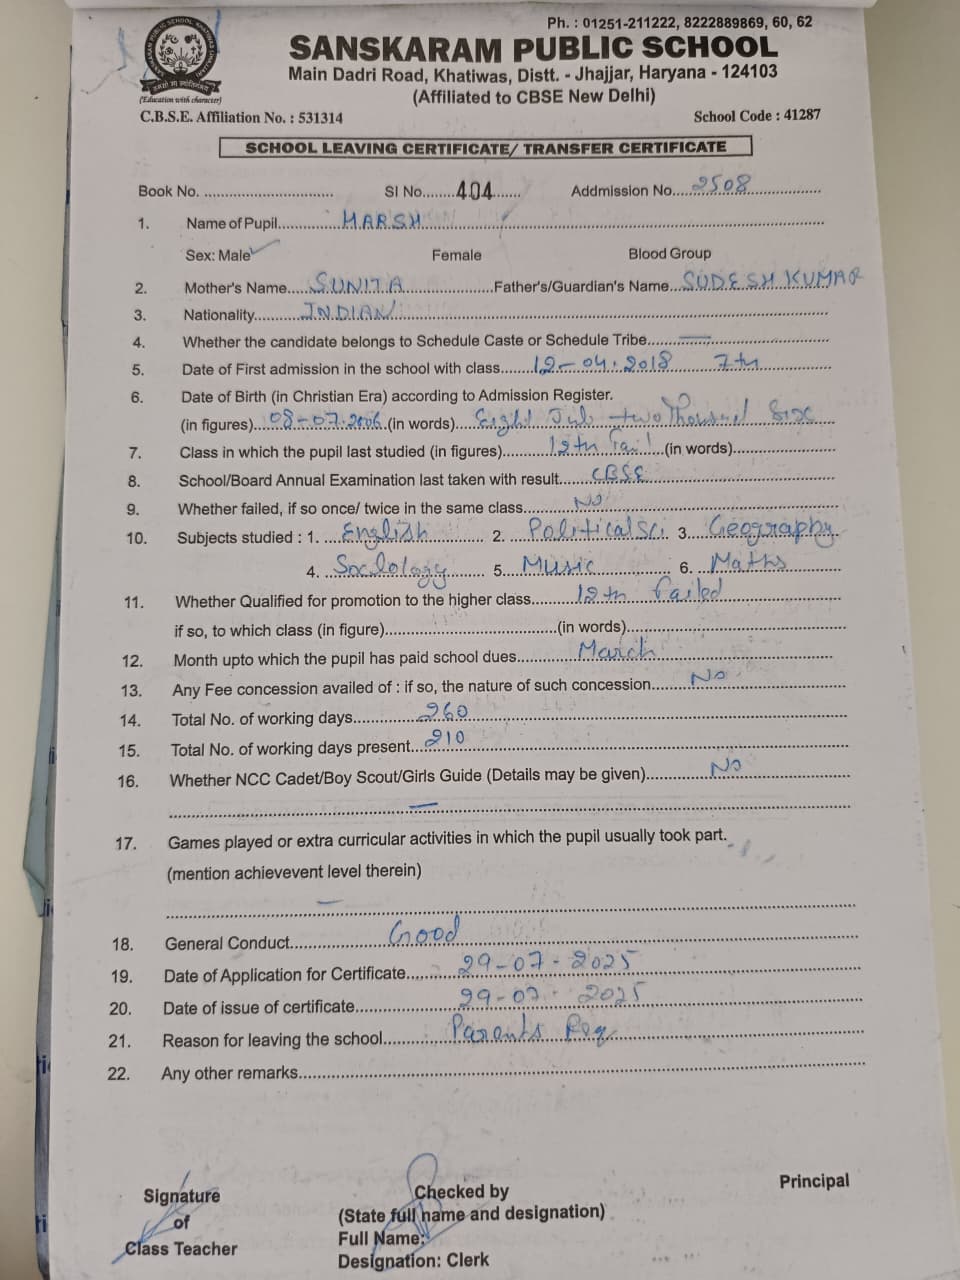 Ph. : 01251-211222, 8222889869, 60, 62
SANSKARAM PUBLIC SCHOOL
Main Dadri Road, Khatiwas, Distt. - Jhajjar, Haryana - 124103
(Affiliated to CBSE New Delhi)
(Education with character)
C.B.S.E. Affiliation No. : 531314 School Code : 41287
SCHOOL LEAVING CERTIFICATE/ TRANSFER CERTIFICATE
Book No. .............. SI No.......404...... Addmission No....2508..............
1. Name of Pupil..............HARSH..............
Sex: Male✓ Female Blood Group
2. Mother's Name.....SUNITA..............Father's/Guardian's Name...SUDESH KUMAR
3. Nationality..........INDIAN..............
4. Whether the candidate belongs to Schedule Caste or Schedule Tribe......—..............
5. Date of First admission in the school with class.......12-04.2018 7th..............
6. Date of Birth (in Christian Era) according to Admission Register.
(in figures)...08-07.2006.(in words)....Eight July two Thousand Six
7. Class in which the pupil last studied (in figures)..........12th Fail.....(in words)..............
8. School/Board Annual Examination last taken with result......CBSE..............
9. Whether failed, if so once/ twice in the same class..........No..............
10. Subjects studied : 1. ...English.......... 2. ...Political Sci. 3...Geography
4. ..Sociology........ 5....Music.............. 6. ...Maths......
11. Whether Qualified for promotion to the higher class.........12th failed..............
if so, to which class (in figure)..............(in words)..............
12. Month upto which the pupil has paid school dues............March..............
13. Any Fee concession availed of : if so, the nature of such concession........No..............
14. Total No. of working days..............260..............
15. Total No. of working days present...210..............
16. Whether NCC Cadet/Boy Scout/Girls Guide (Details may be given)..............No..............
..............—..............
17. Games played or extra curricular activities in which the pupil usually took part.
(mention achievevent level therein)
..............—..............
18. General Conduct..............Good..............
19. Date of Application for Certificate..........29-07-2025..............
20. Date of issue of certificate..............29-07-2025..............
21. Reason for leaving the school..............Parents Req...............
22. Any other remarks..............
Signature Checked by Principal
of (State full name and designation)
Class Teacher Full Name:
Designation: Clerk